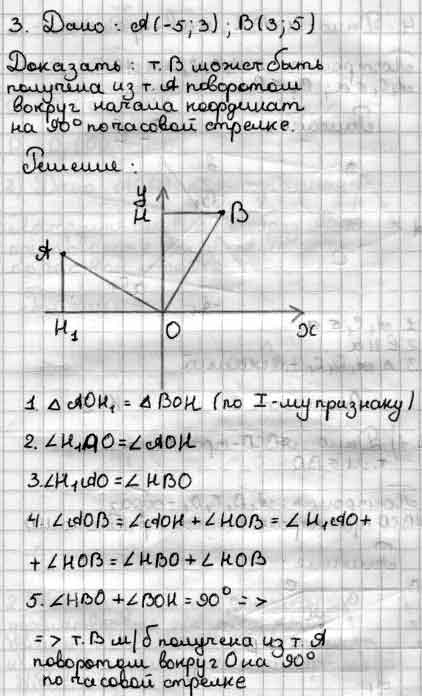 3. Дано: А(-5;3); В(3;5)
Доказать: т. В может быть
получена из т. А поворотом
вокруг начала координат
на 90° по часовой стрелке.
Решение:
y
H
B
A
H₁
O
x
1. △AOH₁ = △BOH (по I-му признаку)
2. ∠H₁AO = ∠AOH
3. ∠H₁AO = ∠HBO
4. ∠AOB = ∠AOH + ∠HOB = ∠H₁AO +
+ ∠HOB = ∠HBO + ∠HOB
5. ∠HBO + ∠BOH = 90° =>
=> т. В м/б получена из т. А
поворотом вокруг О на 90°
по часовой стрелке